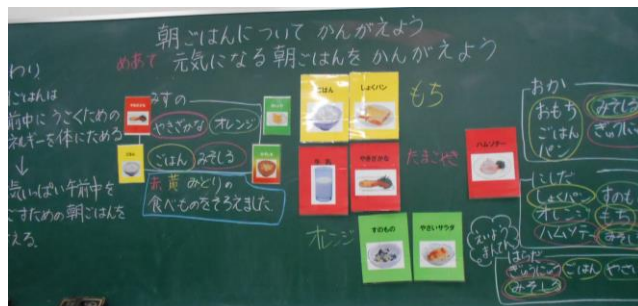 朝ごはんについて かんがえよう
めあて 元気になる朝ごはんを かんがえよう
わり
ごはんは
前中にうごくための
ネルギーを体にためる
↓
気いっぱい午前中を
ごすための朝ごはんを
える。
みずの
やきざかな オレンジ
ごはん みそしる
赤 黄 みどりの
食べものをそろえました
ごはん
しょくパン
もち
牛乳
やきざかな
たまごやき
オレンジ
すのもの
やさいサラダ
ハムソテー
えいよう
まんてん
おか
おもち みそしる
ごはん ぎゅうに
パン
にしだ
しょくパン すのも
オレンジ もち
ハムソテー みそし
はらだ
ぎゅうにゅう ごはん やさい
みそしる